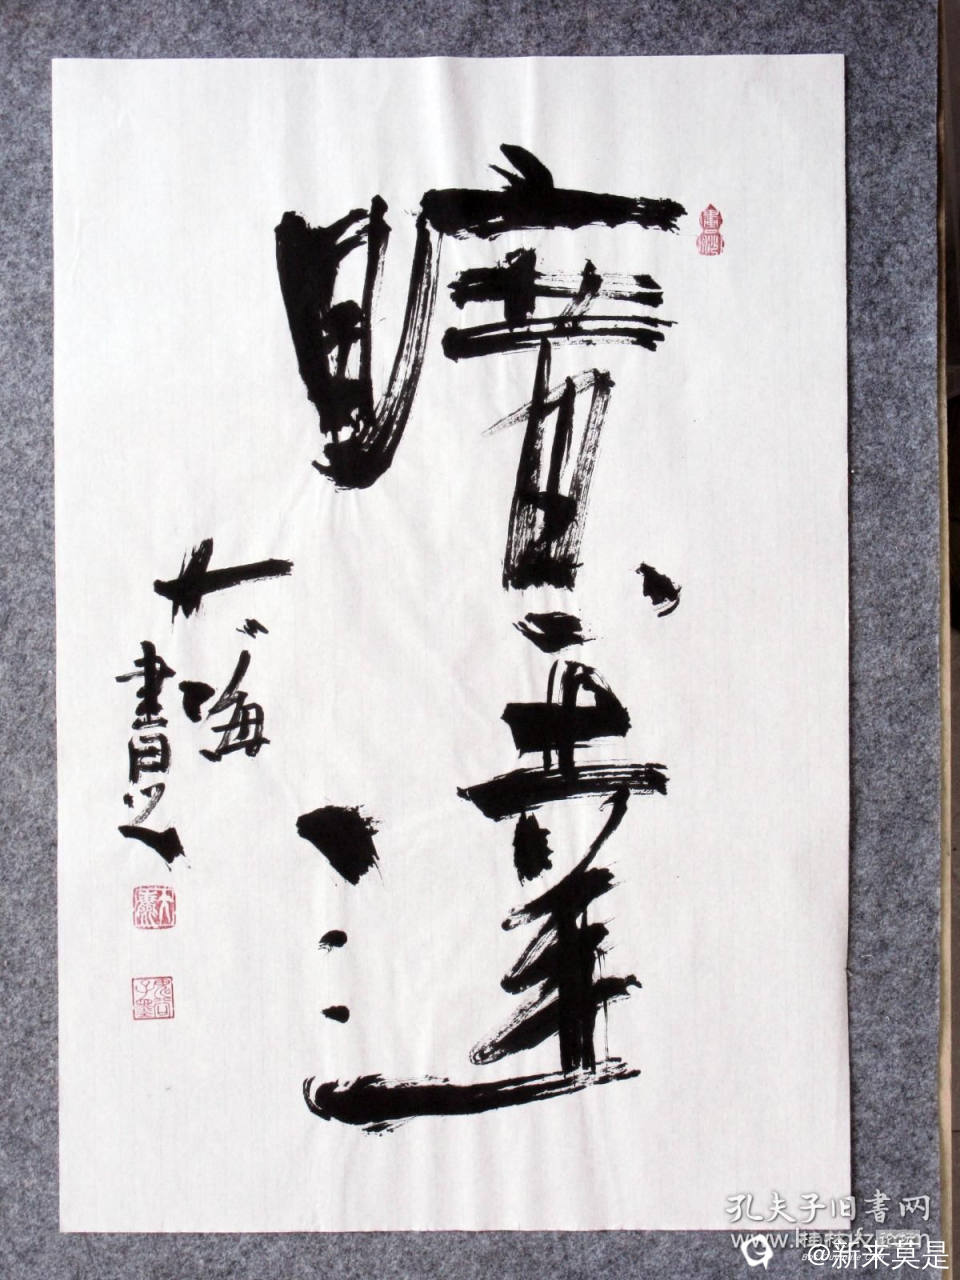 曠達
大海
書之
孔夫子旧書网
@新来莫是